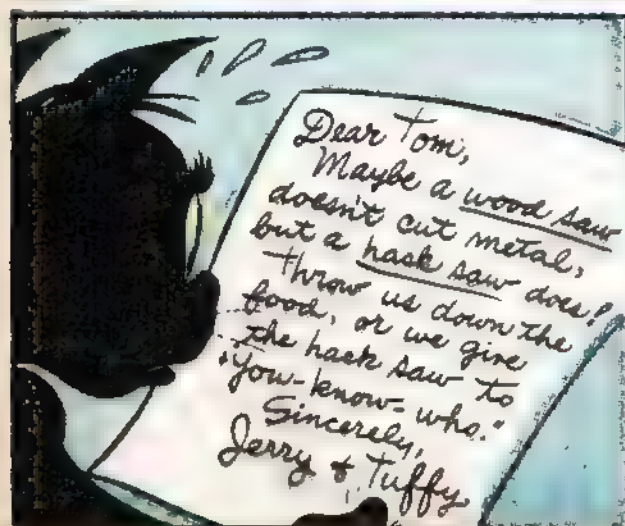 Dear Tom,
Maybe a wood saw
doesn't cut metal,
but a hack saw does!
Throw us down the
food, or we give
the hack saw to
"You-know-who."
Sincerely,
Jerry & Tuffy